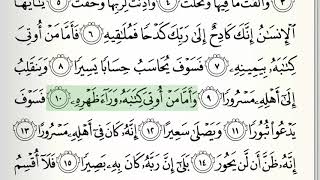 ٣ وَأَلْقَتْ مَا فِيهَا وَتَخَلَّتْ ٤ وَأَذِنَتْ لِرَبِّهَا وَحُقَّتْ ٥ يَٰٓأَيُّهَا
ٱلْإِنسَٰنُ إِنَّكَ كَادِحٌ إِلَىٰ رَبِّكَ كَدْحًا فَمُلَٰقِيهِ ٦ فَأَمَّا مَنْ أُوتِىَ
كِتَٰبَهُۥ بِيَمِينِهِۦ ٧ فَسَوْفَ يُحَاسَبُ حِسَابًا يَسِيرًا ٨ وَيَنقَلِبُ
إِلَىٰٓ أَهْلِهِۦ مَسْرُورًا ٩ وَأَمَّا مَنْ أُوتِىَ كِتَٰبَهُۥ وَرَآءَ ظَهْرِهِۦ ١٠ فَسَوْفَ
يَدْعُوا۟ ثُبُورًا ١١ وَيَصْلَىٰ سَعِيرًا ١٢ إِنَّهُۥ كَانَ فِىٓ أَهْلِهِۦ مَسْرُورًا ١٣
إِنَّهُۥ ظَنَّ أَن لَّن يَحُورَ ١٤ بَلَىٰٓ إِنَّ رَبَّهُۥ كَانَ بِهِۦ بَصِيرًا ١٥ فَلَآ أُقْسِمُ